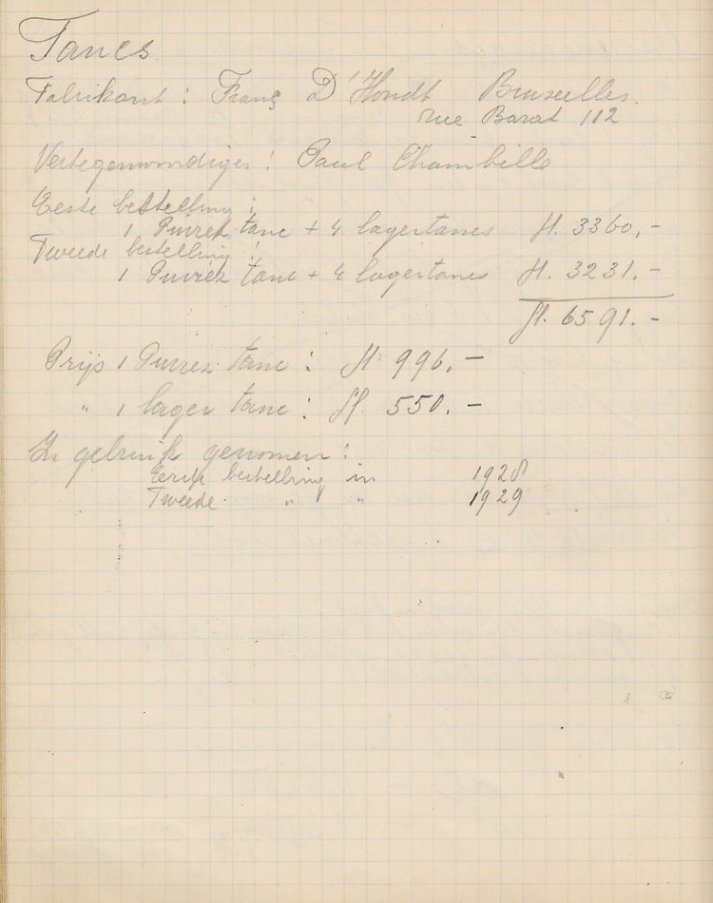 Tancs.
Fabrikant : Franç D'Hondt Bruxelles.
rue Barat 112
Vertegenwoordiger : Paul Chambille
Eeste bestelling :
1 tanc + 4 lagertancs fl. 3360,-
Tweede bestelling :
1 tanc + 4 lagertancs fl. 3231.-
fl. 6591.-
Prijs 1 tanc : fl 996.-
" 1 lager tanc : fl. 550.-
In gebruik genomen :
Eerste bestelling in 1928
Tweede " " 1929